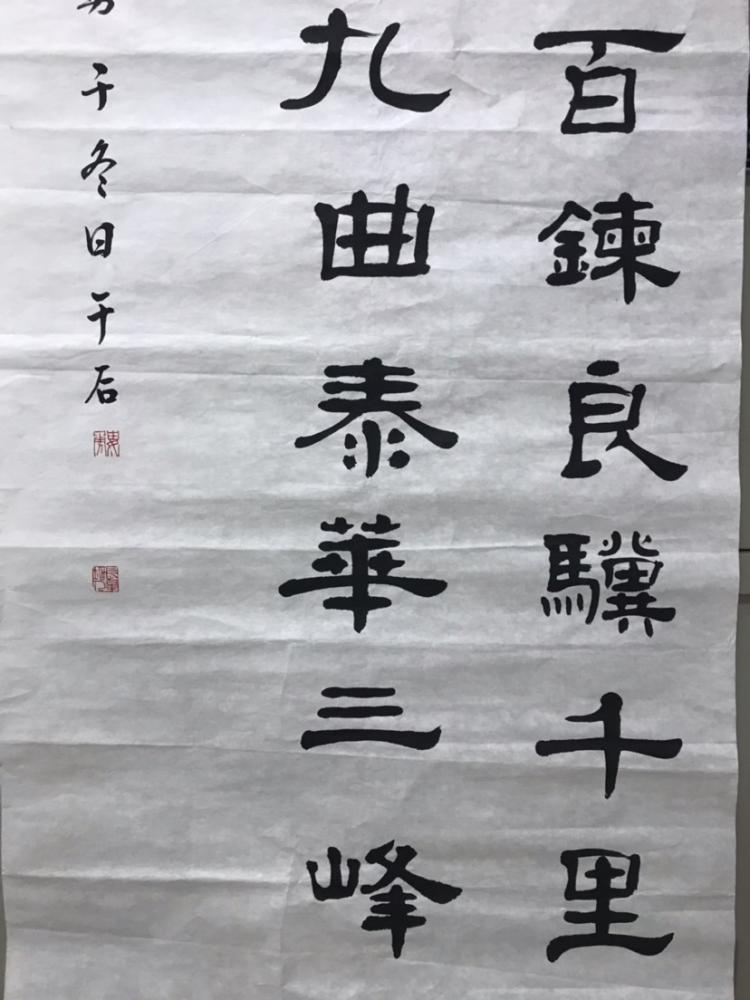 百鍊良驥千里
九曲泰華三峰
于冬日干石